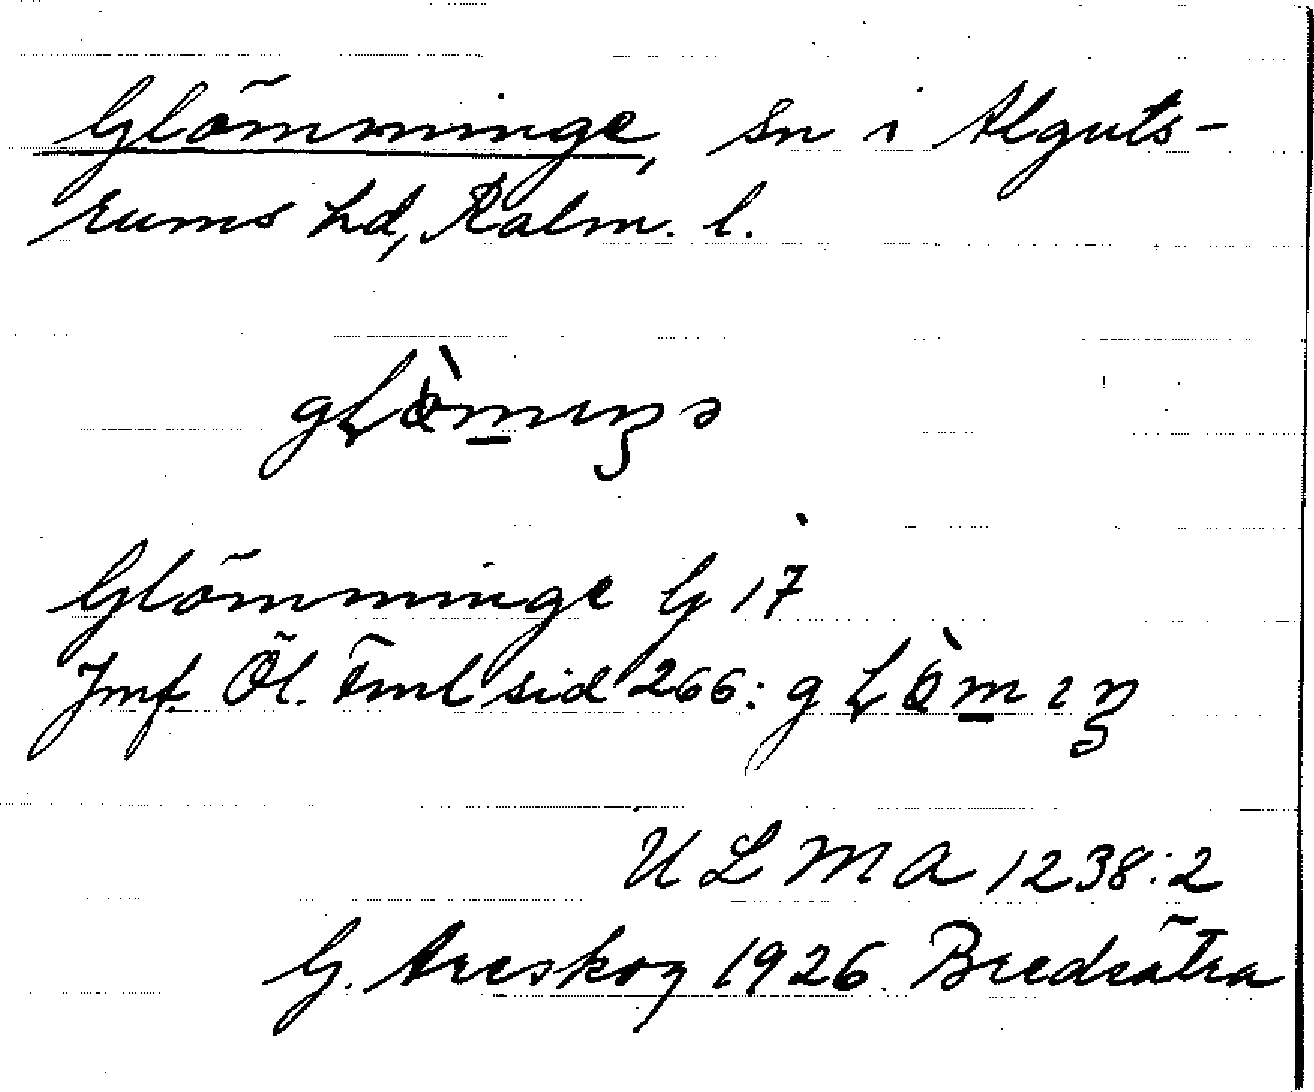 Glömminge, sn i Alguts-
rums hd, Kalm. l.
Glömminge G 17
Jmf. Öl. Fml sid 266:
U L M A 1238:2
G. Areskog 1926 Bredsätra